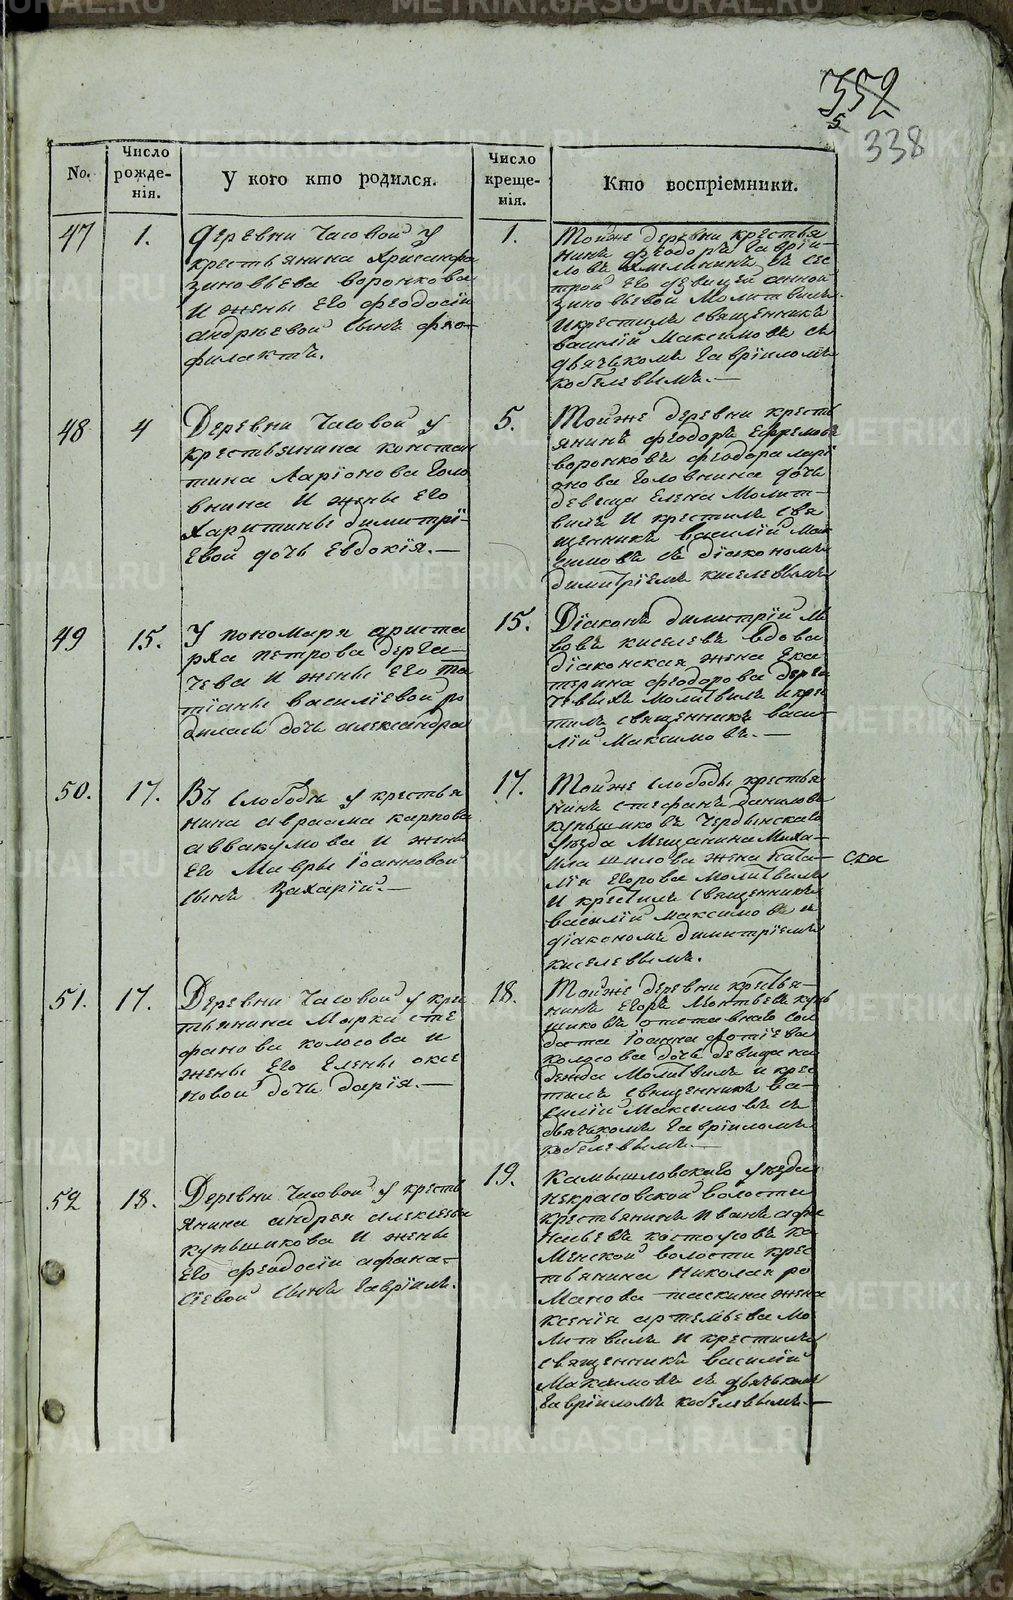 352
5
338
No.
Число рожде-нія.
У кого кто родился.
Число креще-нія.
Кто воспріемники.
47
1.
Деревни Часовой у
крестьянина Хрисанфа
Зиновьева Воронкова
и жены его Феодосіи
Андреевой сынъ Фео-
филактъ.
1.
Тойже деревни крестья
нинъ Феодоръ Гавріи-
ловъ съ сес
трой его девицей Анной
Зиновьевой Молитвилъ
и крестилъ священникъ
Василій Максимовъ съ
дьячькомъ Гавріиломъ
Кобелевымъ.—
48
4
Деревни Часовой у
крестьянина Констан
тина Ларіонова Голо
внина и жены его
Харитины Димитрі-
евой дочь Евдокія.—
5.
Тойже деревни кресть
янинъ Феодоръ Ефремовъ
Воронковъ Феодора Ларі
онова Головнина дочь
девица Елена Молит-
вилъ и крестилъ свя
щенникъ Василій Мак
симовъ съ діакономъ
Димитріемъ Киселевымъ
49
15.
У пономаря Ариста
рха Петрова Дерга-
чева и жены его Та
тіаны Василіевой ро
дилась дочь Александра
15.
Діаконъ Димитрій Ль
вовъ Киселевъ вдова
діаконская жена Ека
терина Феодорова Дерга
чевыхъ Молитвилъ и крес
тилъ священникъ Васи-
лій Максимовъ.—
50.
17.
Въ слободе у крестья
нина Авраама Карпова
Аввакумова и жены
его Мавры Іоанновой
сынъ Захарій.—
17.
Тойже слободы крестья
нинъ Стефанъ Даниловъ
Куньшиковъ Чердынскаго
уезда Мещанина Миха-
ила Шилова жена Ната-
лія Егорова Молитвилъ
и крестилъ священникъ
Василій Максимовъ и
діакономъ Димитріемъ
Киселевымъ.
51.
17.
Деревни Часовой у крес
тьянина Марка Сте
фанова Колосова и
жены его Елены Оксе
новой дочь Дарія.—
18.
Тойже деревни крестья-
нинъ Егоръ Леонтьевъ Кунь
шиковъ отставнаго сол
дата Іоанна Фотіева
Колосова дочь девица На
дежда Молитвилъ и крес
тилъ священникъ Ва-
силій Максимовъ съ
дьячькомъ Гавріиломъ
Кобелевымъ.—
52
18.
Деревни Часовой у кресть
янина Андрея Алексеева
Куньшикова и жены
его Феодосіи Афана-
сіевой сынъ Гавріилъ.
19.
Камышловскаго уезда
Некрасовской волости
крестьянинъ Иванъ Афа
насьевъ Костоусовъ Ка
менской волости крес
тьянина Николая Ро
манова Паскина жена
Ксенія Артемьева Мо
литвилъ и крестилъ
священникъ Василій
Максимовъ съ дьячькомъ
Гавріиломъ Кобелевымъ.—
METRIKI.GASO-URAL.RU